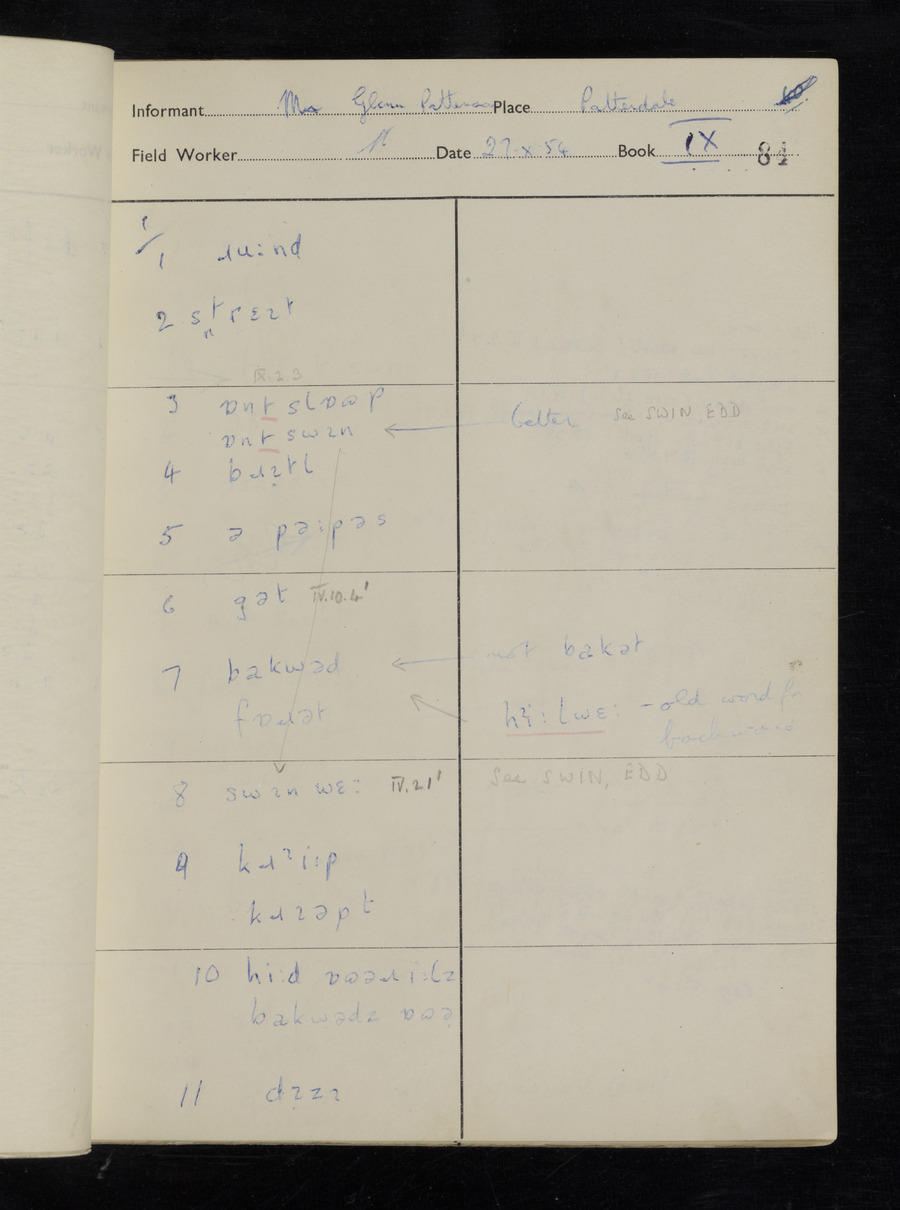 Informant Mr Glenn Patterson Place Patterdale
Field Worker Date 27.x.54 Book IX 84
1/1 ɹuːnd
2 strɛɪt
IX.2.3
3 ɒnt slɒʊp
better See SWIN EDD
ɒnt swɪn
4 bɹɪtl
5 ə pəːpəs
6 gət IV.10.4'
7 bakwəd not bakət
fɒɹət
hiːlwɛː - old word for backwards
8 swɪn wɛː IV.2.1' See SWIN, EDD
9 kɹɪiːp
kɹɪəpt
10 hiːd ɒʊəɹ iːlz
bakwədz ɒʊə
11 dɪzɪ